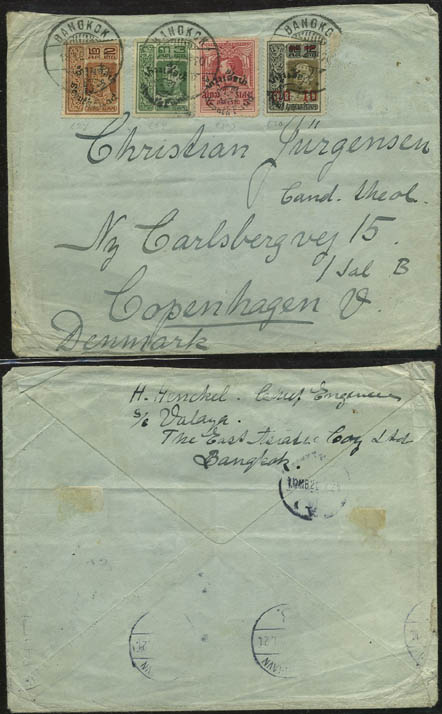 BANGKOK
BANGKOK
Christian Jürgensen
Cand. theol.
Ny Carlsbergvej 15.
1 Sal B
Copenhagen V.
Denmark
H. Henckel. Chief Engineer
S/S Valaya.
The East Asiatic Coy Ltd
Bangkok.